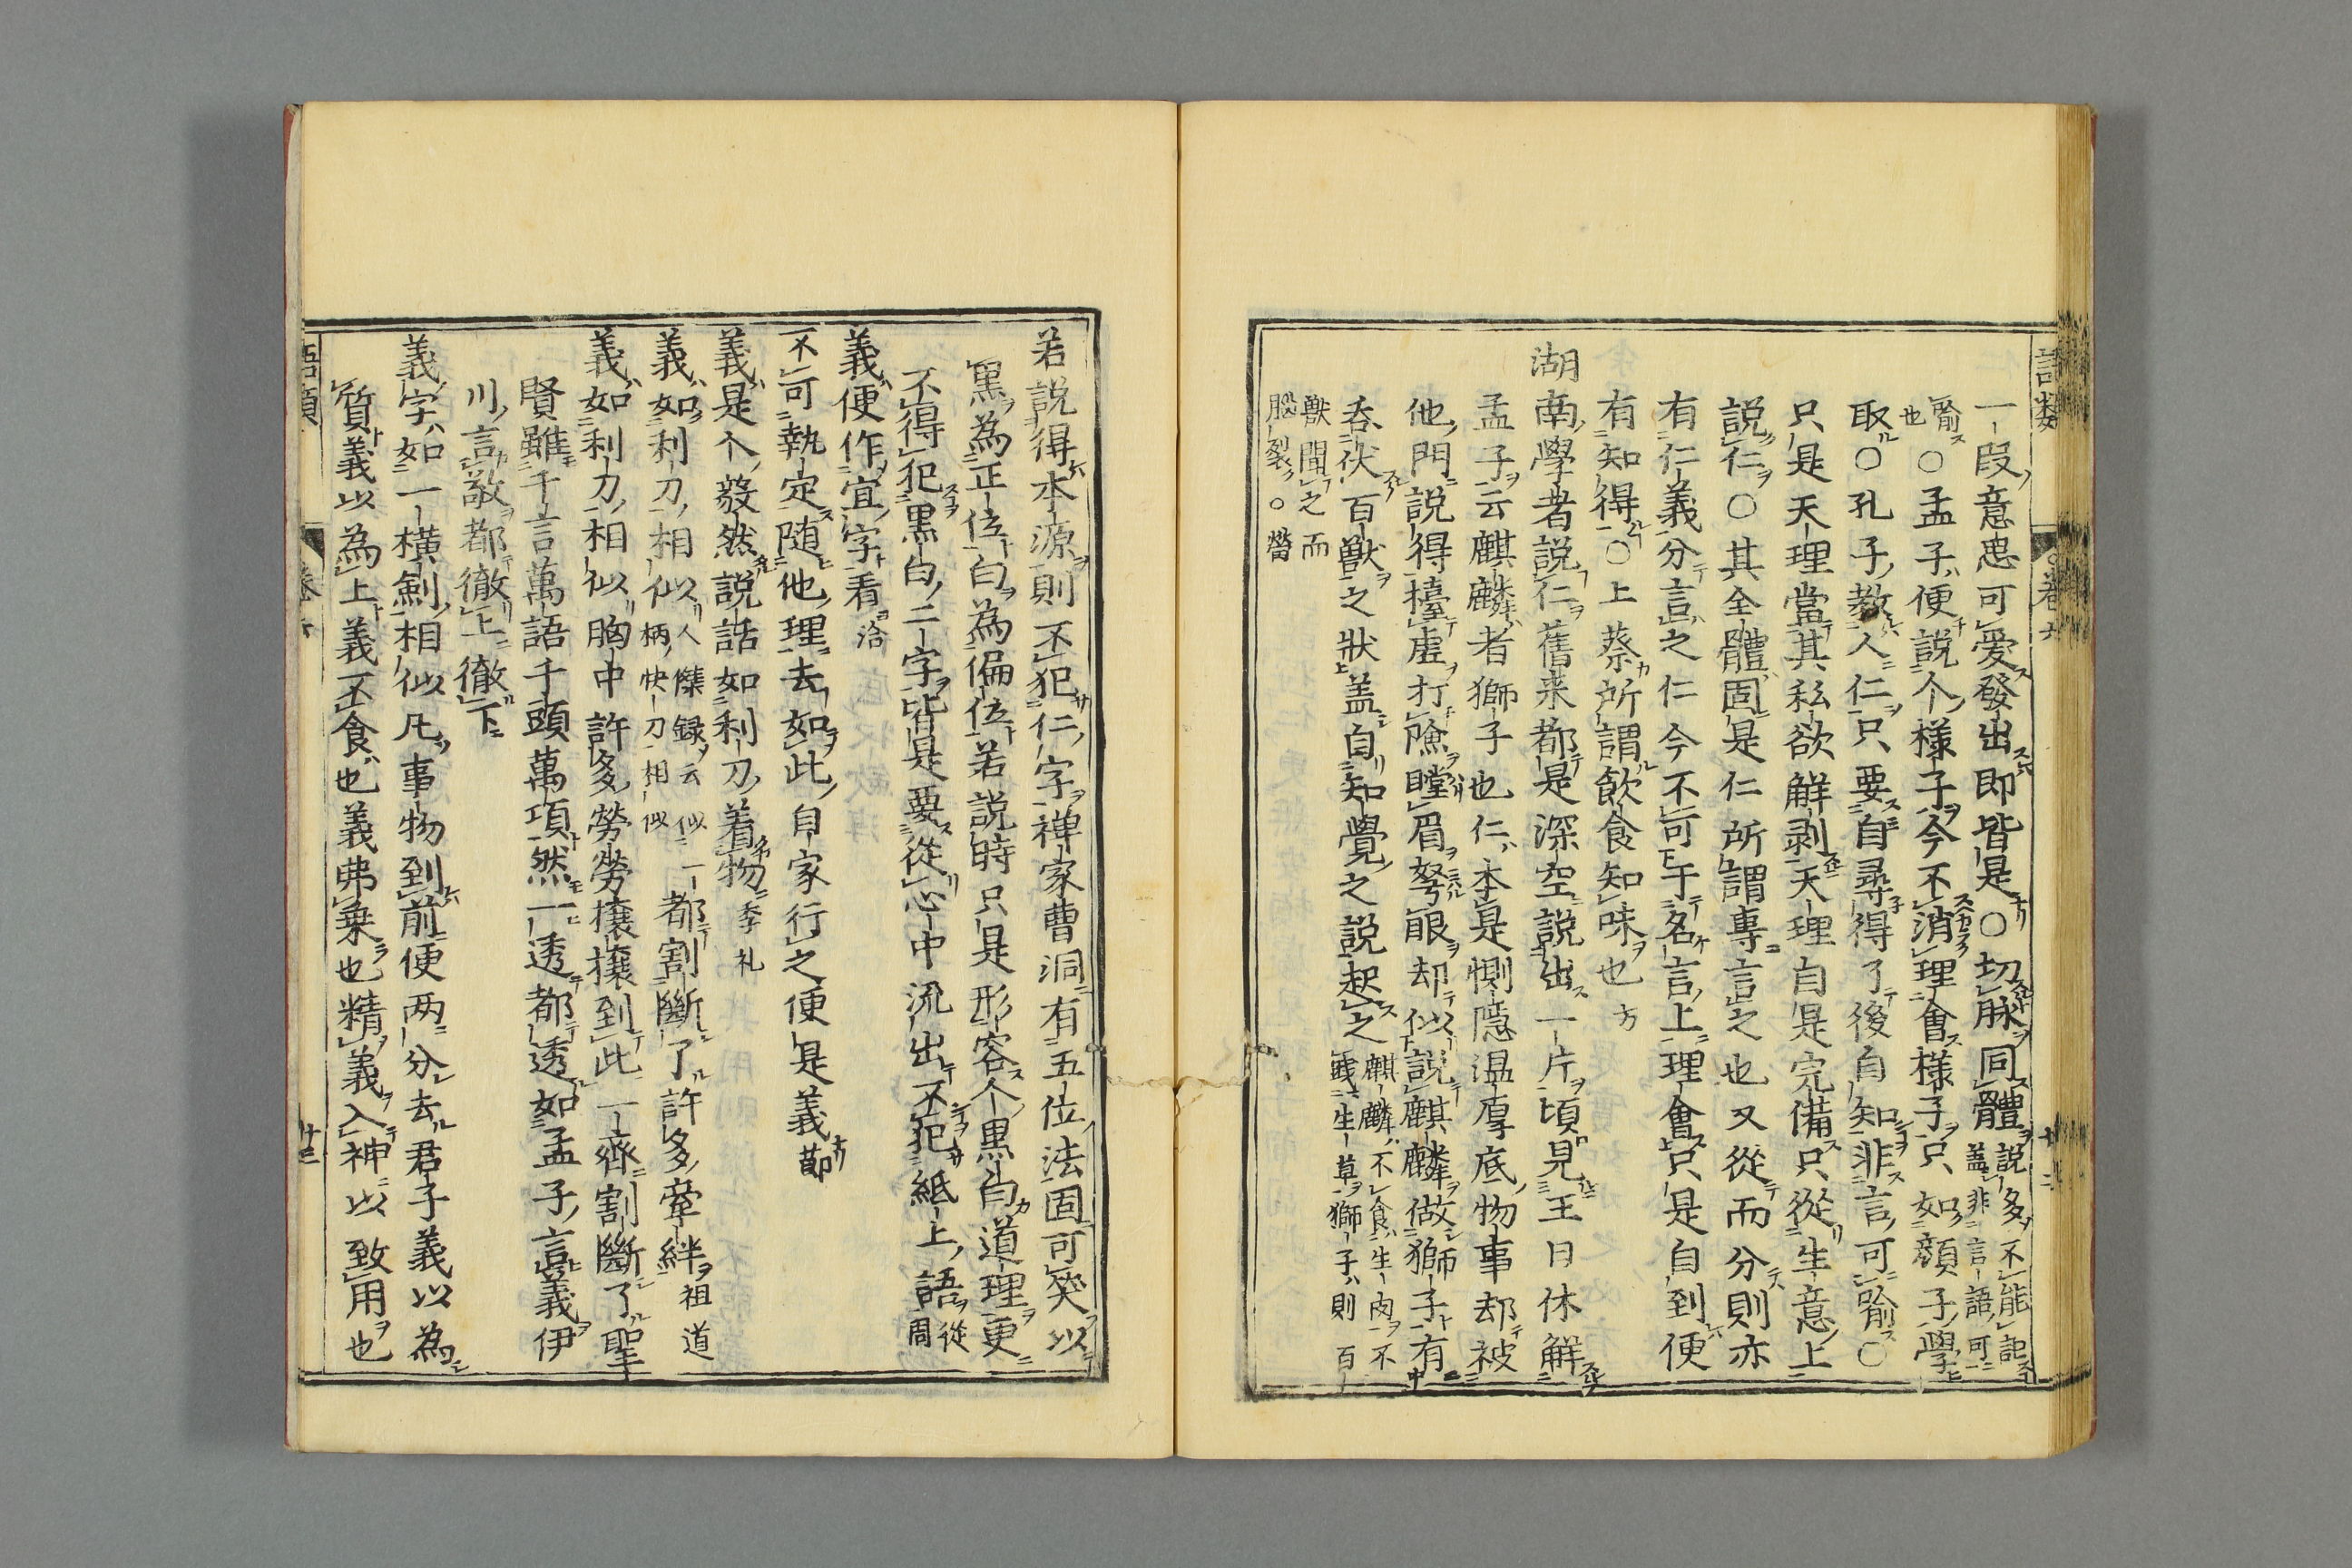 語類 卷六 十二
一段意思可愛發出即皆是〇切脉同體説多不能記盖非言語可
喻也〇孟子便説个樣子今不消理會樣子只如顔子學
取〇孔子教人仁只要自尋得了後自知非言可喻〇
只是天理當其私欲解剥天理自是完備只從生意上
説仁〇其全體固是仁所謂專言之也又從而分則亦
有仁義分言之仁今不可于名言上理會只是自到便
有知得〇上蔡所謂飲食知味也方
湖南學者説仁舊来都是深空説出一片頃見王日休解
孟子云麒麟者獅子也仁本是惻隠温厚底物事却被
他門説得擡虚打險瞠眉弩眼却似説麒麟做獅子有
吞伏百獣之狀盖自知覺之説起之麒麟不食生肉不踐生草獅子則百
獸聞之而腦裂〇䕃
若説得本源則不犯仁字禅家曹洞有五位法固可笑以
黒為正位白為偏位若説時只是形容个黒白道理更
不得犯黒白二字皆是要從心中流出不犯紙上語從周
義便作宜字看洽
不可執定随他理去如此自家行之便是義節
義是个毅然説話如利刀着物季札
義如利刀相似人傑録云似一柄快刀相似都割斷了許多牽絆祖道
義如利刀相似胸中許多勞勞攘攘到此一齊割斷了聖
賢雖千言萬語千頭萬項然一透都透如孟子言義伊
川言敬都徹上徹下
義字如一横劍相似凡事物到前便两分去君子義以為
質義以為上義不食也義弗乗也精義入神以致用也
語類 卷六 十三